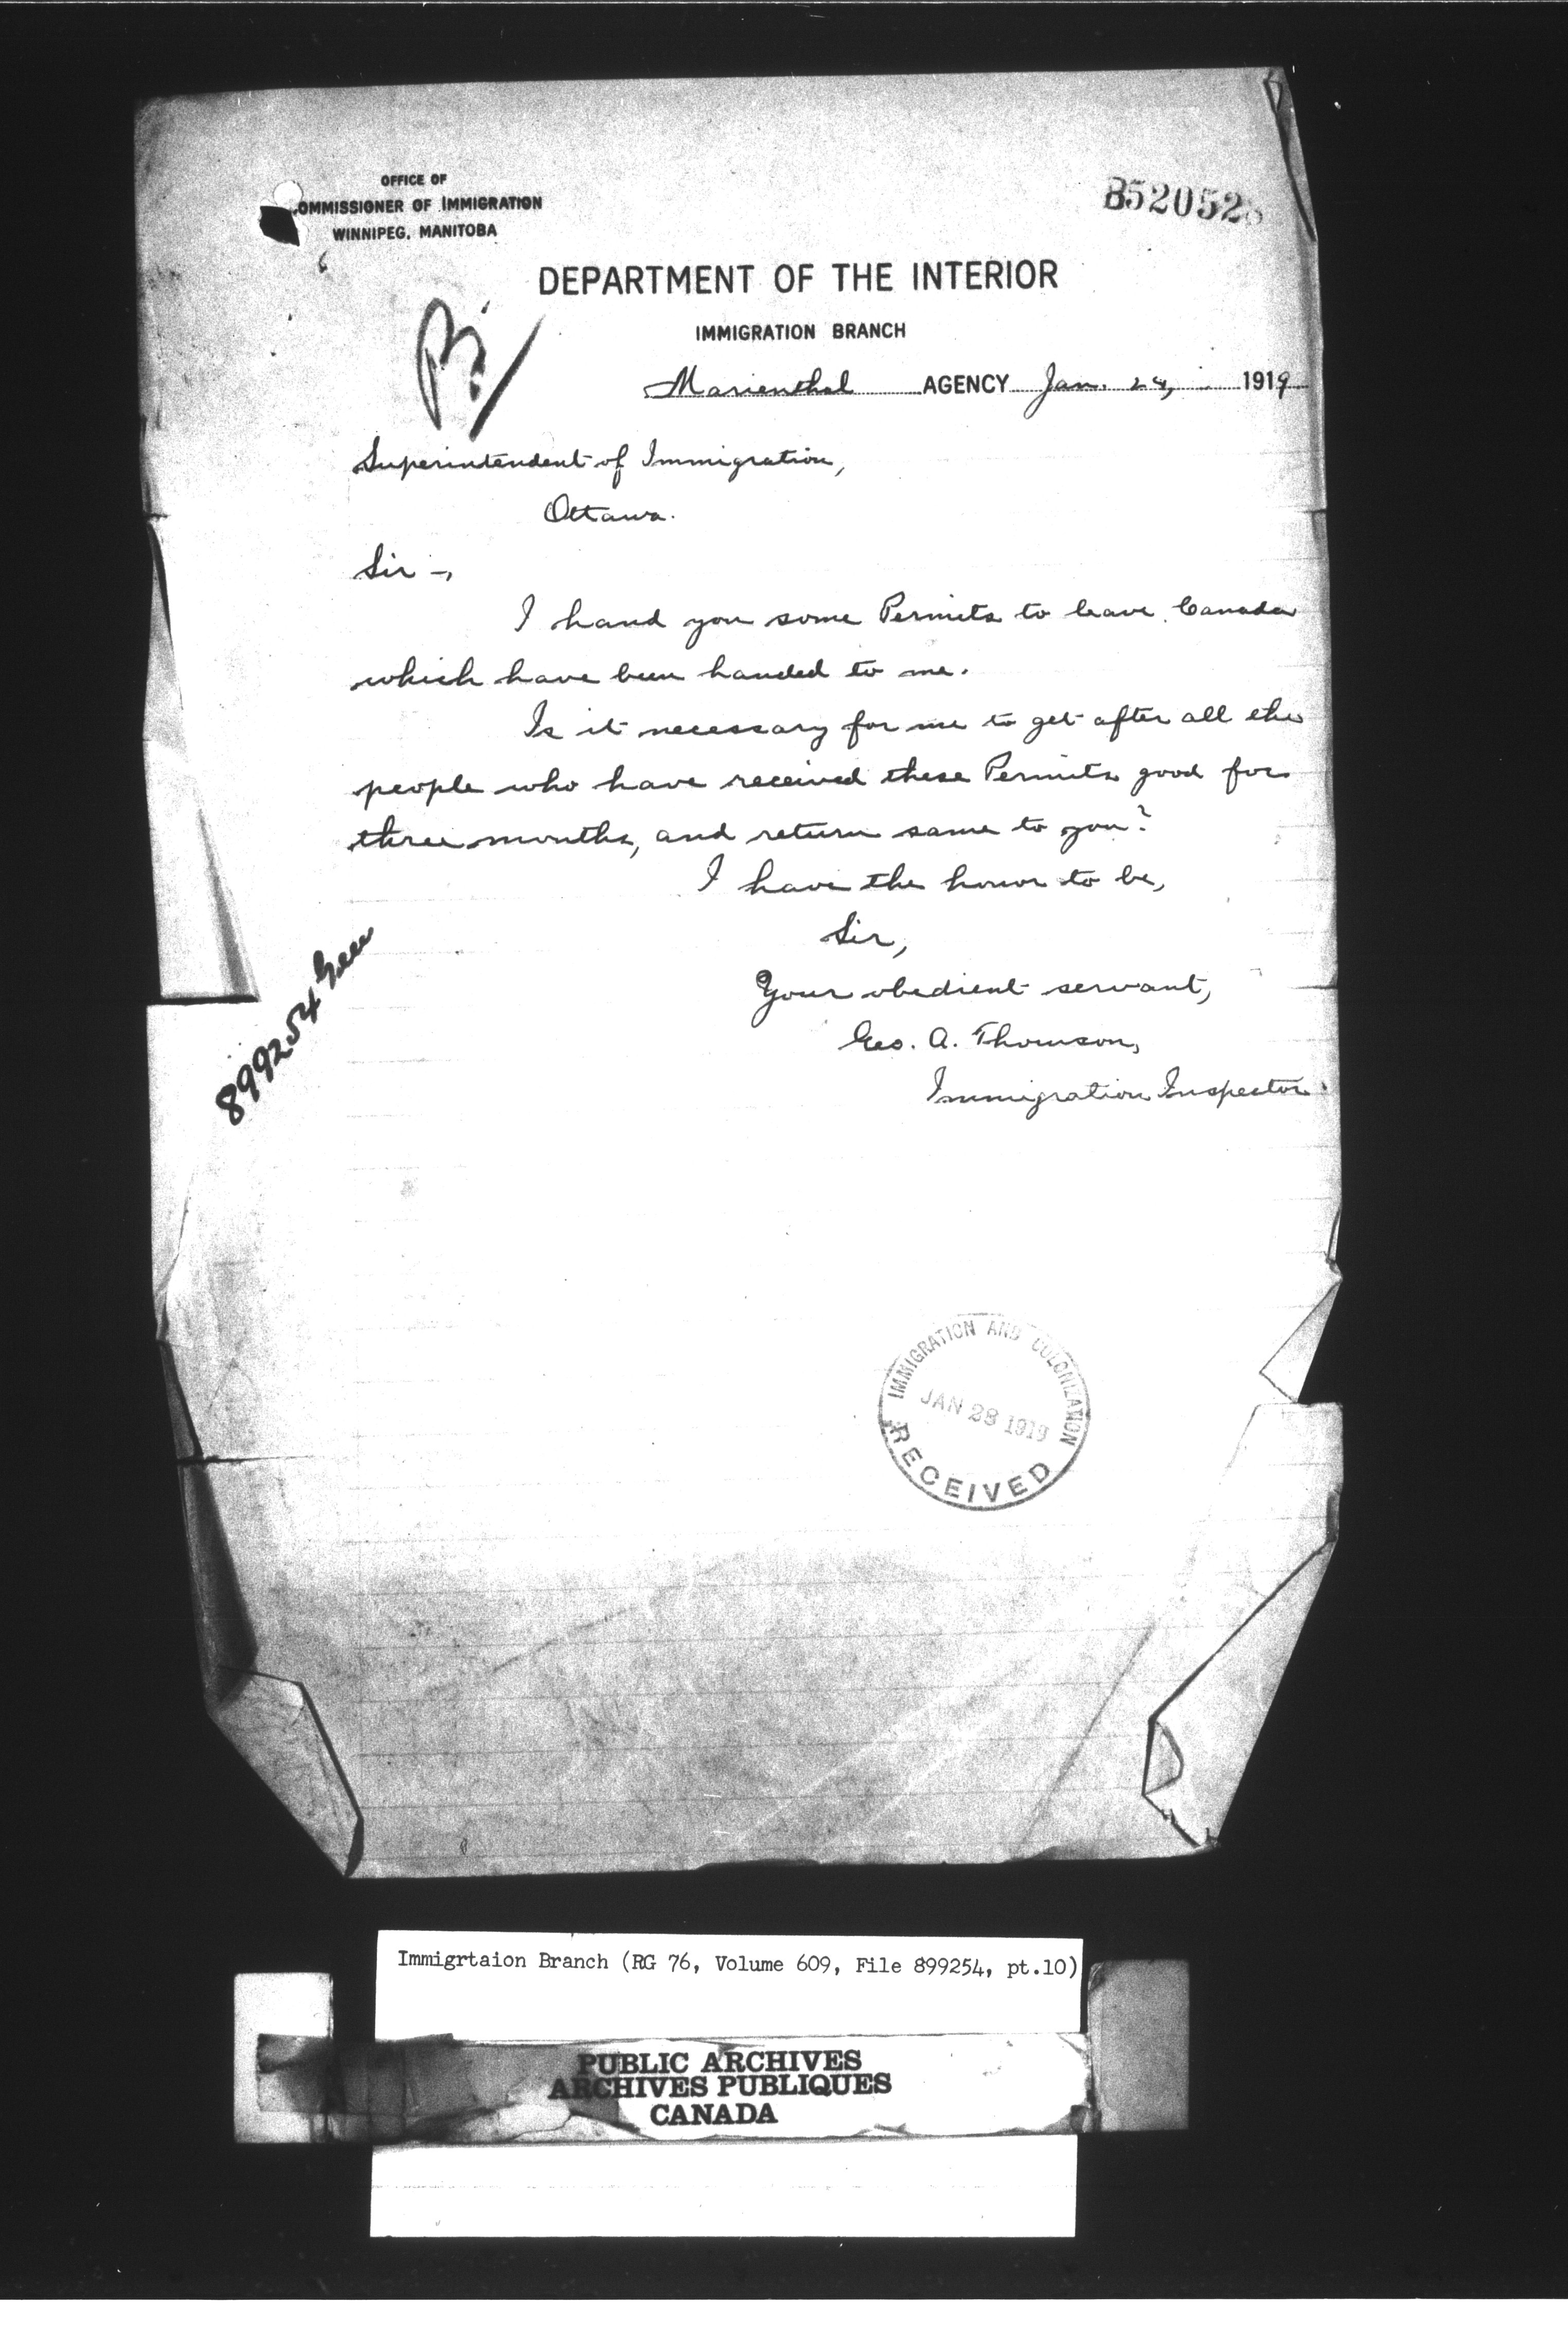 OFFICE OF
OMMISSIONER OF IMMIGRATION
WINNIPEG, MANITOBA
B52052
DEPARTMENT OF THE INTERIOR
IMMIGRATION BRANCH
Marienthal AGENCY Jan. 24, 1919
Superintendent of Immigration,
Ottawa.
Sir -,
I hand you some Permits to leave Canada
which have been handed to me.
Is it necessary for me to get after all the
people who have received these Permits good for
three months, and return same to you?
I have the honor to be,
Sir,
Your obedient servant,
Geo. A. Thomson,
Immigration Inspector.
899254
IMMIGRATION AND COLONIZATION
JAN 28 1919
RECEIVED
Immigrtaion Branch (RG 76, Volume 609, File 899254, pt.10)
PUBLIC ARCHIVES
ARCHIVES PUBLIQUES
CANADA